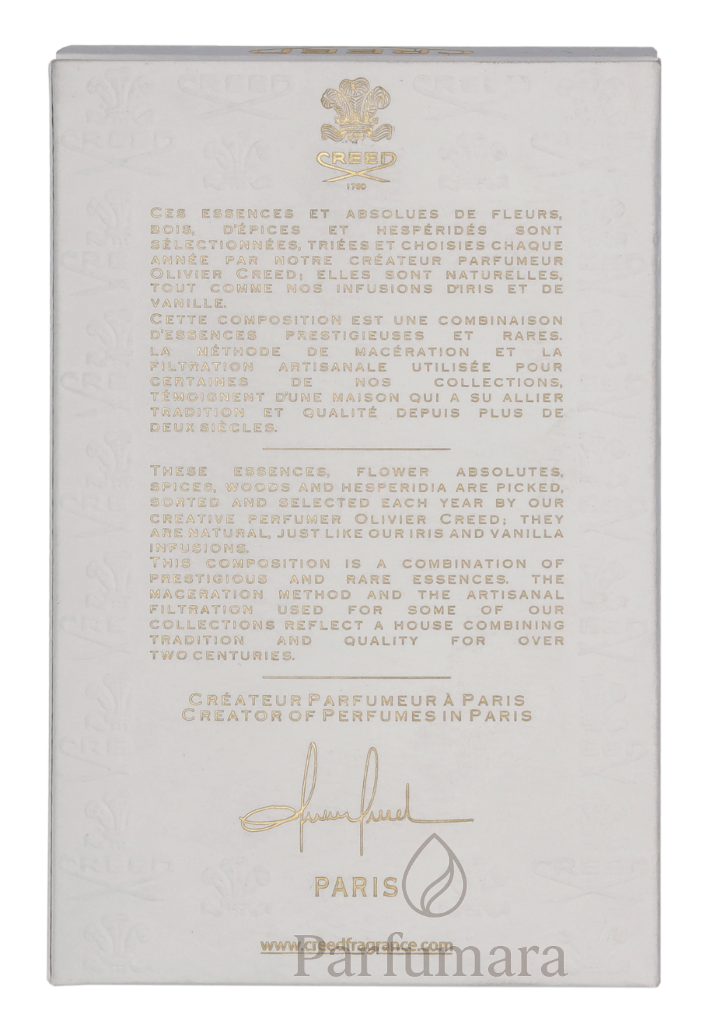 CREED
CREED
1760
CES ESSENCES ET ABSOLUES DE FLEURS,
BOIS, D'ÉPICES ET HESPÉRIDÉS SONT
SÉLECTIONNÉES, TRIÉES ET CHOISIES CHAQUE
ANNÉE PAR NOTRE CRÉATEUR PARFUMEUR
OLIVIER CREED; ELLES SONT NATURELLES,
TOUT COMME NOS INFUSIONS D'IRIS ET DE
VANILLE.
CETTE COMPOSITION EST UNE COMBINAISON
D'ESSENCES PRESTIGIEUSES ET RARES.
LA MÉTHODE DE MACÉRATION ET LA
FILTRATION ARTISANALE UTILISÉE POUR
CERTAINES DE NOS COLLECTIONS,
TÉMOIGNENT D'UNE MAISON QUI A SU ALLIER
TRADITION ET QUALITÉ DEPUIS PLUS DE
DEUX SIÈCLES.
THESE ESSENCES, FLOWER ABSOLUTES,
SPICES, WOODS AND HESPERIDIA ARE PICKED,
SORTED AND SELECTED EACH YEAR BY OUR
CREATIVE PERFUMER OLIVIER CREED; THEY
ARE NATURAL, JUST LIKE OUR IRIS AND VANILLA
INFUSIONS.
THIS COMPOSITION IS A COMBINATION OF
PRESTIGIOUS AND RARE ESSENCES. THE
MACERATION METHOD AND THE ARTISANAL
FILTRATION USED FOR SOME OF OUR
COLLECTIONS REFLECT A HOUSE COMBINING
TRADITION AND QUALITY FOR OVER
TWO CENTURIES.
CRÉATEUR PARFUMEUR À PARIS
CREATOR OF PERFUMES IN PARIS
PARIS
www.creedfragrance.com
Parfumara